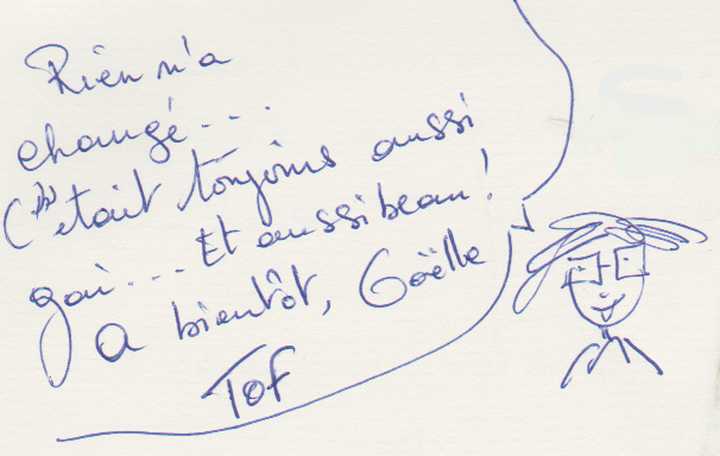 Rien n'a
changé...
C'était toujours aussi
gai... Et aussi beau!
A bientôt, Gaëlle
Tof